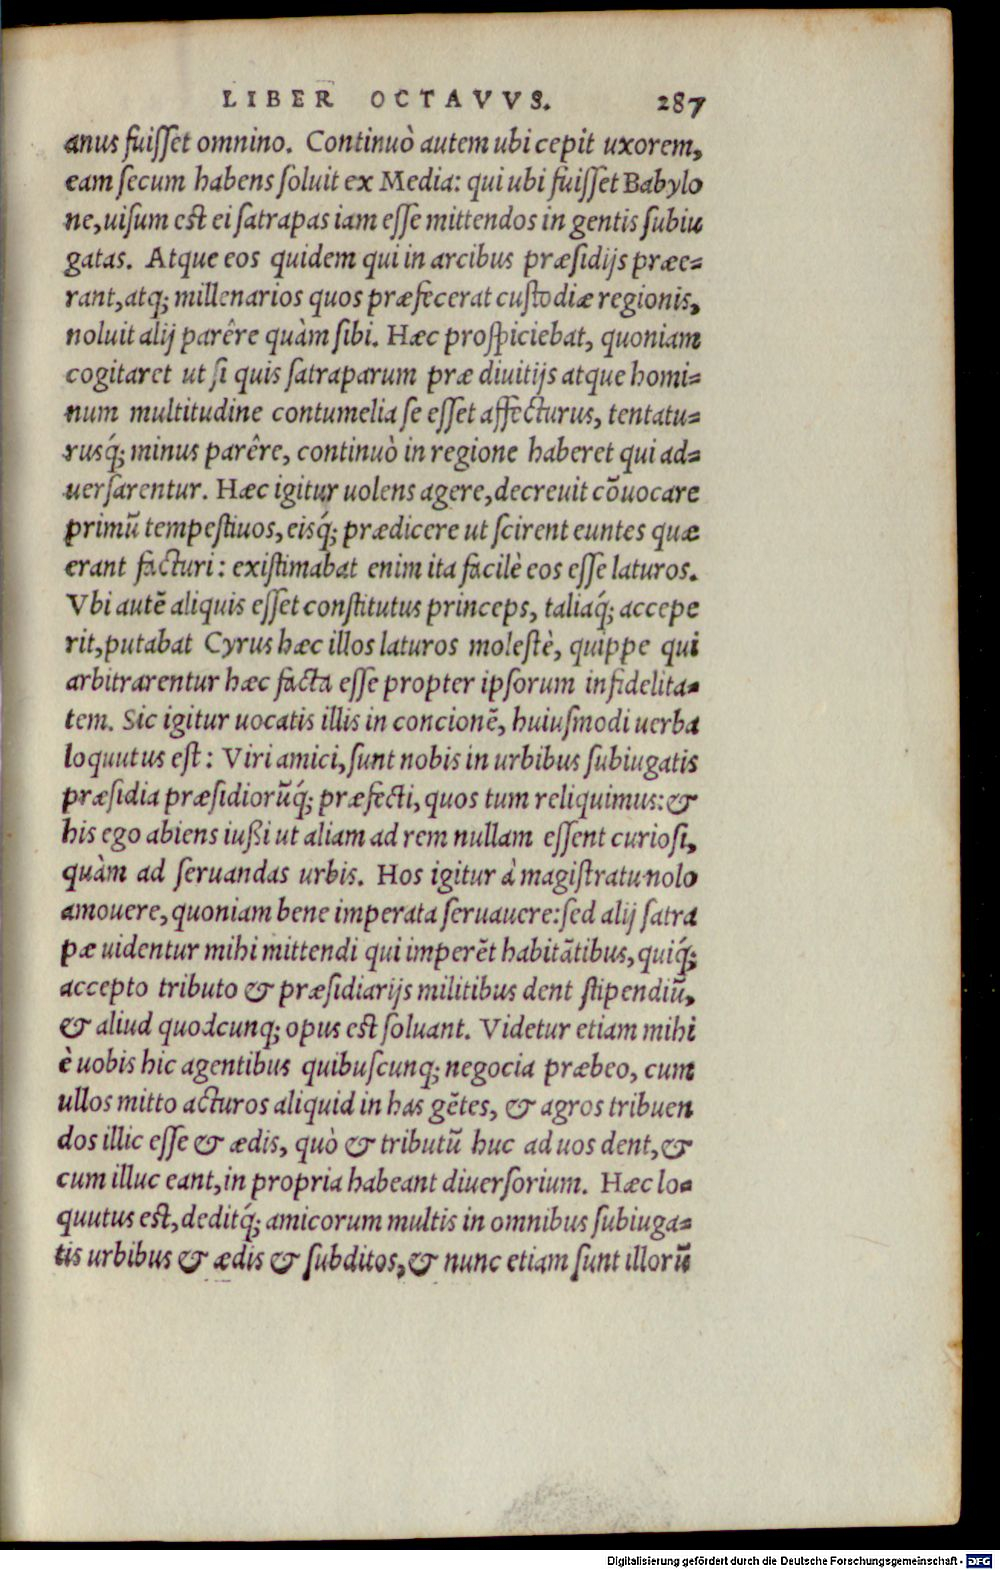 LIBER OCTAVVS. 287
anus fuisset omnino. Continuò autem ubi cepit uxorem,
eam secum habens soluit ex Media: qui ubi fuisset Babylo
ne, uisum est ei satrapas iam esse mittendos in gentis subiu
gatas. Atque eos quidem qui in arcibus præsidijs præe-
rant, atq; millenarios quos præfecerat custodiæ regionis,
noluit alij parêre quàm sibi. Hæc prospiciebat, quoniam
cogitaret ut si quis satraparum præ diuitijs atque homi-
num multitudine contumelia se esset affecturus, tentatu-
rusq́; minus parêre, continuò in regione haberet qui ad-
uersarentur. Hæc igitur uolens agere, decreuit cõuocare
primũ tempestiuos, eisq́; prædicere ut scirent euntes quæ
erant facturi: existimabat enim ita facilè eos esse laturos.
Vbi autẽ aliquis esset constitutus princeps, taliaq́; accepe
rit, putabat Cyrus hæc illos laturos molestè, quippe qui
arbitrarentur hæc facta esse propter ipsorum infidelita-
tem. Sic igitur uocatis illis in concionẽ, huiusmodi uerba
loquutus est: Viri amici, sunt nobis in urbibus subiugatis
præsidia præsidiorũq́; præfecti, quos tum reliquimus: &
his ego abiens iußi ut aliam ad rem nullam essent curiosi,
quàm ad seruandas urbis. Hos igitur à magistratu nolo
amouere, quoniam bene imperata seruauere: sed alij satra
pæ uidentur mihi mittendi qui imperẽt habitãtibus, quiq́;
accepto tributo & præsidiarijs militibus dent stipendiũ,
& aliud quodcunq; opus est soluant. Videtur etiam mihi
è uobis hic agentibus quibuscunq; negocia præbeo, cum
ullos mitto acturos aliquid in has gẽtes, & agros tribuen
dos illic esse & ædis, quò & tributũ huc ad uos dent, &
cum illuc eant, in propria habeant diuersorium. Hæc lo-
quutus est, deditq́; amicorum multis in omnibus subiuga-
tis urbibus & ædis & subditos, & nunc etiam sunt illorũ
Digitalisierung gefördert durch die Deutsche Forschungsgemeinschaft - DFG